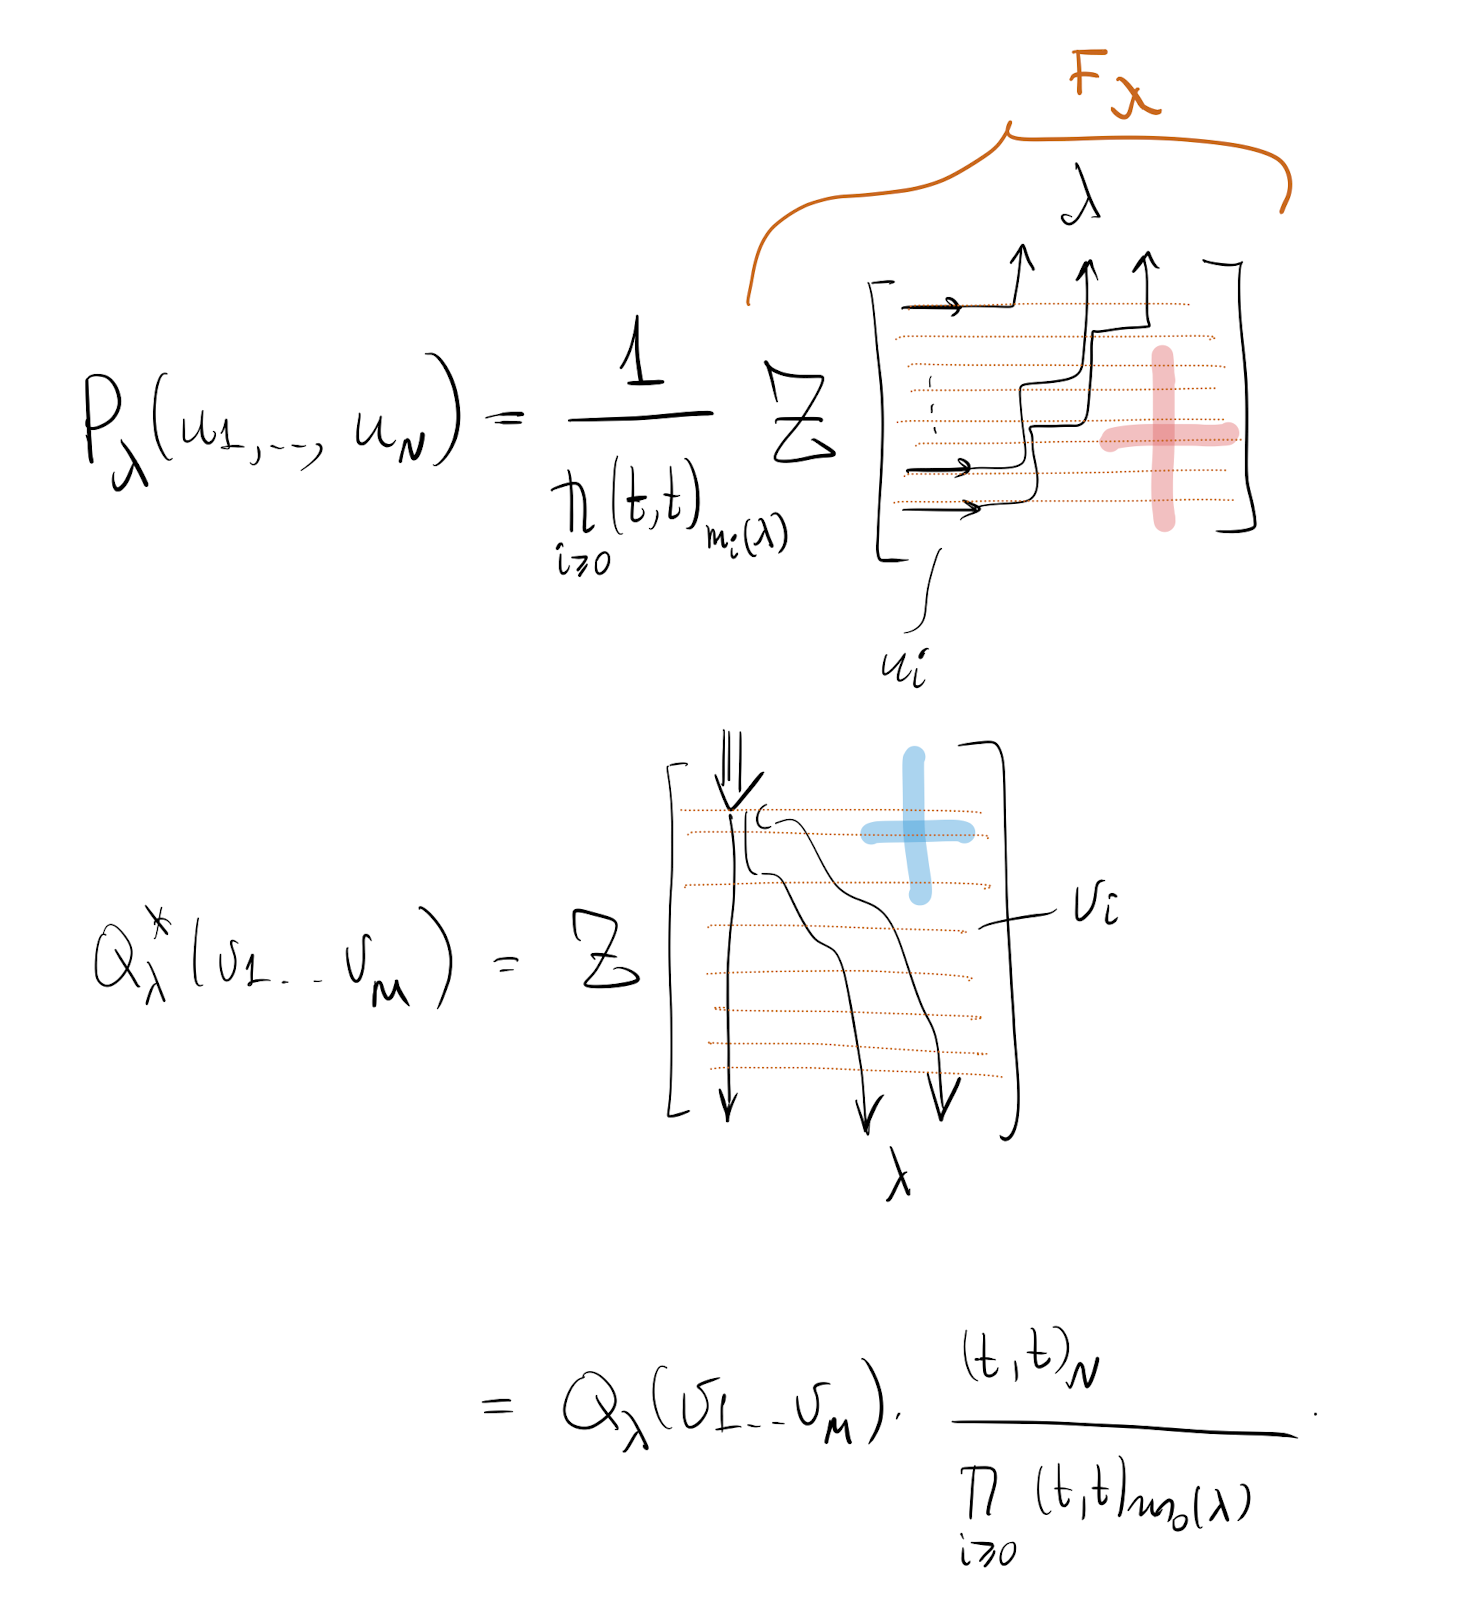 F_λ
λ
P_λ(u_1, ..., u_N) = 1 / ∏_{i≥0} (t,t)_{m_i(λ)} Z [ ]
u_i
Q*_λ(v_1 ... v_M) = Z [ ] v_i
λ
= Q_λ(v_1 ... v_M) · (t,t)_N / ∏_{i≥0} (t,t)_{m_0(λ)} .